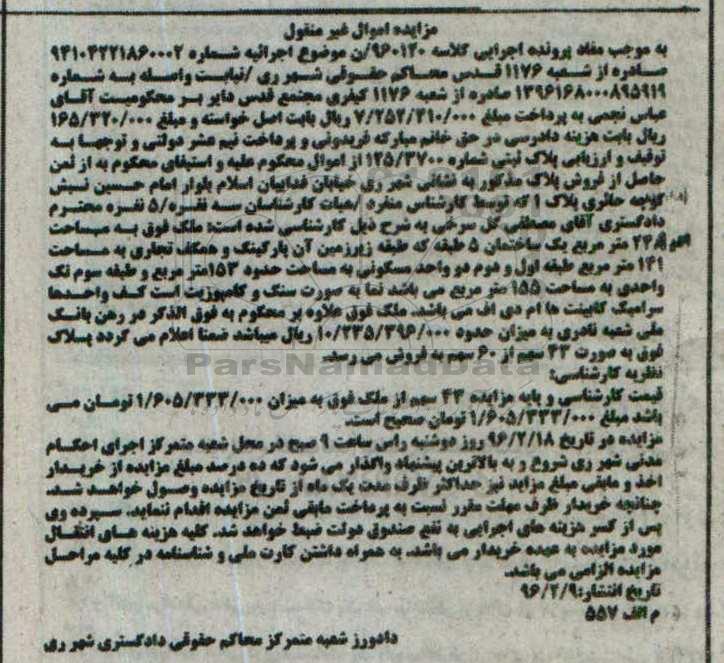 مزایده اموال غیر منقول
به موجب مفاد پرونده اجرایی کلاسه ۹۶۰۱۲۰/ن موضوع اجرائیه شماره ۹۴۱۰۴۲۲۱۸۶۰۰۰۲
صادره از شعبه ۱۱۷۶ قدس محاکم حقوقی شهر ری /نیابت واصله به شماره
۱۳۹۶۱۶۸۰۰۰۸۹۵۹۱۹ صادره از شعبه ۱۱۷۶ کیفری مجتمع قدس دایر بر محکومیت آقای
عباس نجمی به پرداخت مبلغ ۷/۲۵۲/۲۱۰/۰۰۰ ریال بابت اصل خواسته و مبلغ ۱۶۵/۳۲۰/۰۰۰
ریال بابت هزینه دادرسی در حق خانم مبارکه فریدونی و پرداخت نیم عشر دولتی و توجها به
توقیف و ارزیابی پلاک ثبتی شماره ۱۲۵/۳۷۰۰ از اموال محکوم علیه و استیفای محکوم به از ثمن
حاصل از فروش پلاک مذکور به نشانی شهر ری خیابان فدائیان اسلام بلوار امام حسین نبش
کوچه حائری پلاک ۱ که توسط کارشناس منفرد /هیات کارشناسان سه نفره/۵ نفره محترم
دادگستری آقای مصطفی گل سرخی به شرح ذیل کارشناسی شده است: ملک فوق به مساحت
۲۴۸ متر مربع یک ساختمان ۵ طبقه که طبقه زیرزمین آن پارکینگ و همکف تجاری به مساحت
۱۴۱ متر مربع طبقه اول و دوم دو واحد مسکونی به مساحت حدود ۱۵۳متر مربع و طبقه سوم تک
واحدی به مساحت ۱۵۵ متر مربع می باشد نما به صورت سنگ و کامپوزیت است کف واحدها
سرامیک کابینت ها ام دی اف می باشد. ملک فوق علاوه بر محکوم به فوق الذکر در رهن بانک
ملی شعبه نادری به میزان حدود ۱۰/۲۳۵/۳۹۶/۰۰۰ ریال میباشد ضمنا اعلام می گردد پلاک
فوق به صورت ۴۳ سهم از ۶۰ سهم به فروش می رسد.
ParsNamadData
نظریه کارشناسی:
قیمت کارشناسی و پایه مزایده ۴۳ سهم از ملک فوق به میزان ۱/۶۰۵/۳۳۳/۰۰۰ تومان می
باشد مبلغ ۱/۶۰۵/۳۳۳/۰۰۰ تومان صحیح است.
مزایده در تاریخ ۹۶/۲/۱۸ روز دوشنبه راس ساعت ۹ صبح در محل شعبه متمرکز اجرای احکام
مدنی شهر ری شروع و به بالاترین پیشنهاد واگذار می شود که ده درصد مبلغ مزایده از خریدار
اخذ و مابقی مبلغ مزاید نیز حداکثر ظرف مدت یک ماه از تاریخ مزایده وصول خواهد شد.
چنانچه خریدار ظرف مهلت مقرر نسبت به پرداخت مابقی ثمن مزایده اقدام ننماید، سپرده وی
پس از کسر هزینه های اجرایی به نفع صندوق دولت ضبط خواهد شد. کلیه هزینه های انتقال
مورد مزایده به عهده خریدار می باشد. به همراه داشتن کارت ملی و شناسنامه در کلیه مراحل
مزایده الزامی می باشد.
تاریخ انتشار:۹۶/۲/۹
م الف ۵۵۷
دادورز شعبه متمرکز محاکم حقوقی دادگستری شهر ری